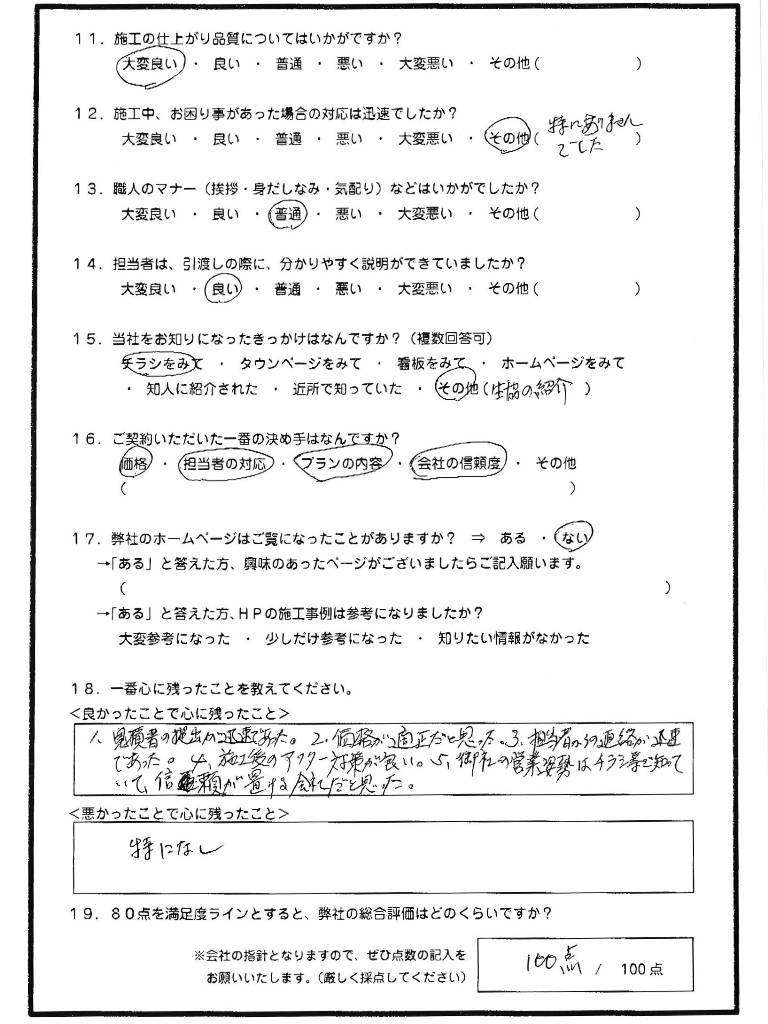 11．施工の仕上がり品質についてはいかがですか？
大変良い ・ 良い ・ 普通 ・ 悪い ・ 大変悪い ・ その他（　　　　　　）
12．施工中、お困り事があった場合の対応は迅速でしたか？
大変良い ・ 良い ・ 普通 ・ 悪い ・ 大変悪い ・ その他（特にありません
でした）
13．職人のマナー（挨拶・身だしなみ・気配り）などはいかがでしたか？
大変良い ・ 良い ・ 普通 ・ 悪い ・ 大変悪い ・ その他（　　　　　　）
14．担当者は、引渡しの際に、分かりやすく説明ができていましたか？
大変良い ・ 良い ・ 普通 ・ 悪い ・ 大変悪い ・ その他（　　　　　　）
15．当社をお知りになったきっかけはなんですか？（複数回答可）
チラシをみて ・ タウンページをみて ・ 看板をみて ・ ホームページをみて
・ 知人に紹介された ・ 近所で知っていた ・ その他（生協の紹介 ）
16．ご契約いただいた一番の決め手はなんですか？
価格 ・ 担当者の対応 ・ プランの内容 ・ 会社の信頼度 ・ その他
（　　　　　　）
17．弊社のホームページはご覧になったことがありますか？ ⇒ ある ・ ない
→「ある」と答えた方、興味のあったページがございましたらご記入願います。
（　　　　　　）
→「ある」と答えた方、ＨＰの施工事例は参考になりましたか？
大変参考になった ・ 少しだけ参考になった ・ 知りたい情報がなかった
18．一番心に残ったことを教えてください。
<良かったことで心に残ったこと>
1. 見積書の提出が迅速であった。2. 価格が適正だと思った。3. 担当者からの連絡が迅速
であった。4. 施工後のアフター対策が良い。5. 御社の営業姿勢はチラシ等で知って
いて、信頼が置ける会社だと思った。
<悪かったことで心に残ったこと>
特になし
19．80点を満足度ラインとすると、弊社の総合評価はどのくらいですか？
※会社の指針となりますので、ぜひ点数の記入を
お願いいたします。（厳しく採点してください）
100点 / 100点